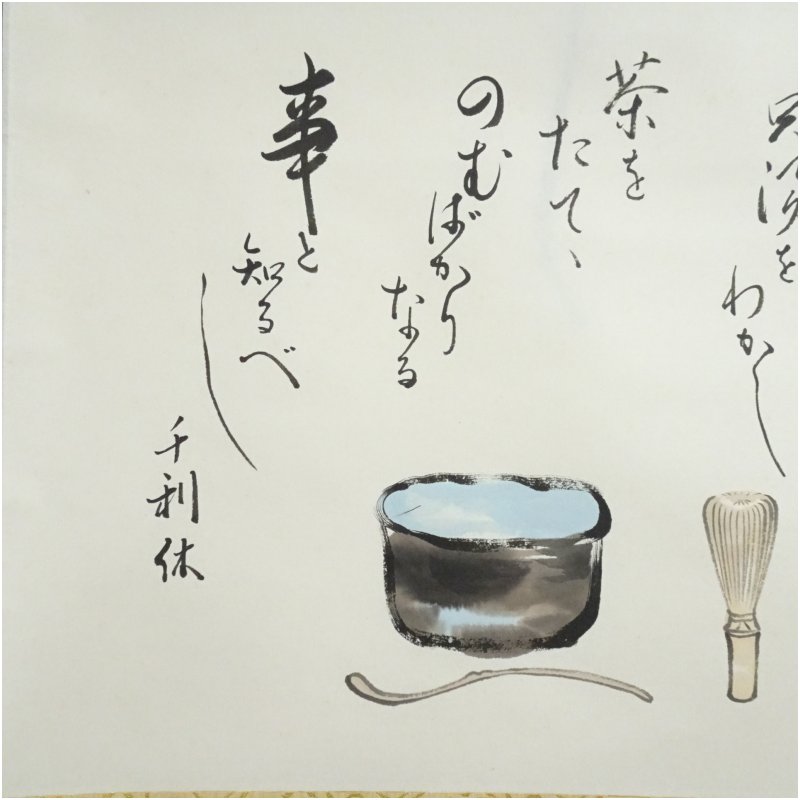 只湯を
わかし
茶を
たてゝ
のむばかり
なる
事と
知るべし
千利休